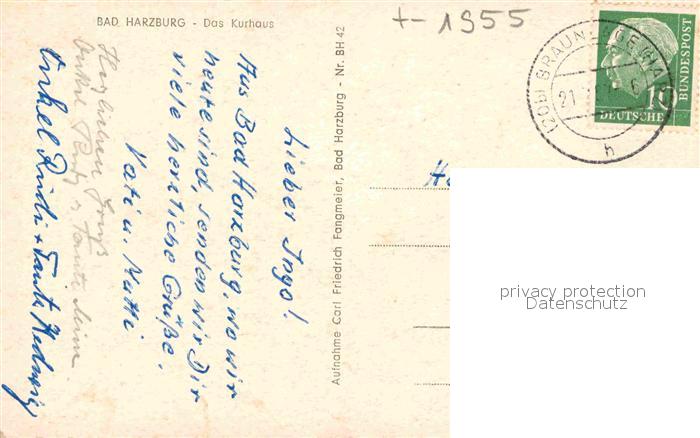 BAD HARZBURG - Das Kurhaus
+-1955
Lieber Ingo!
Aus Bad Harzburg, wo wir
heute sind, senden wir Dir
viele herzliche Grüße.
Vati u. Mutti
Herzlichen Gruß
Onkel
Tante
Onkel Rudi + Tante Hedwig
Aufnahme Carl Friedrich Fangmeier, Bad Harzburg - Nr. BH 42
(20b) BRAUNLAGE (HARZ)
21
h
10
DEUTSCHE
BUNDESPOST
privacy protection
Datenschutz